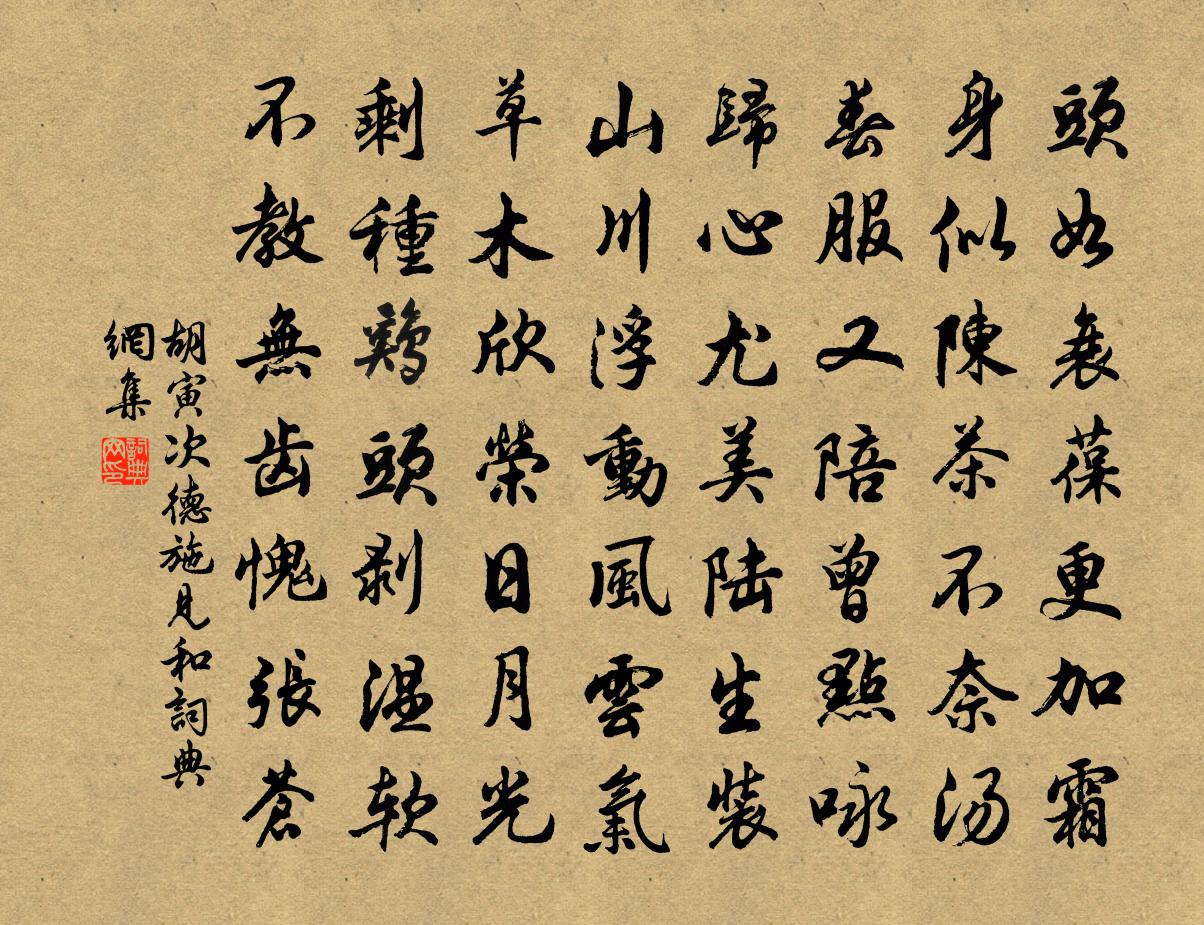 頭如衰葆更加霜
身似陳茶不奈湯
春服又陪曾點咏
歸心尤美陆生裝
山川浮動風雲氣
草木欣榮日月光
剩種鷄頭剥温软
不教無齿愧張蒼
胡寅次德施見和詞典
網集
詞典網